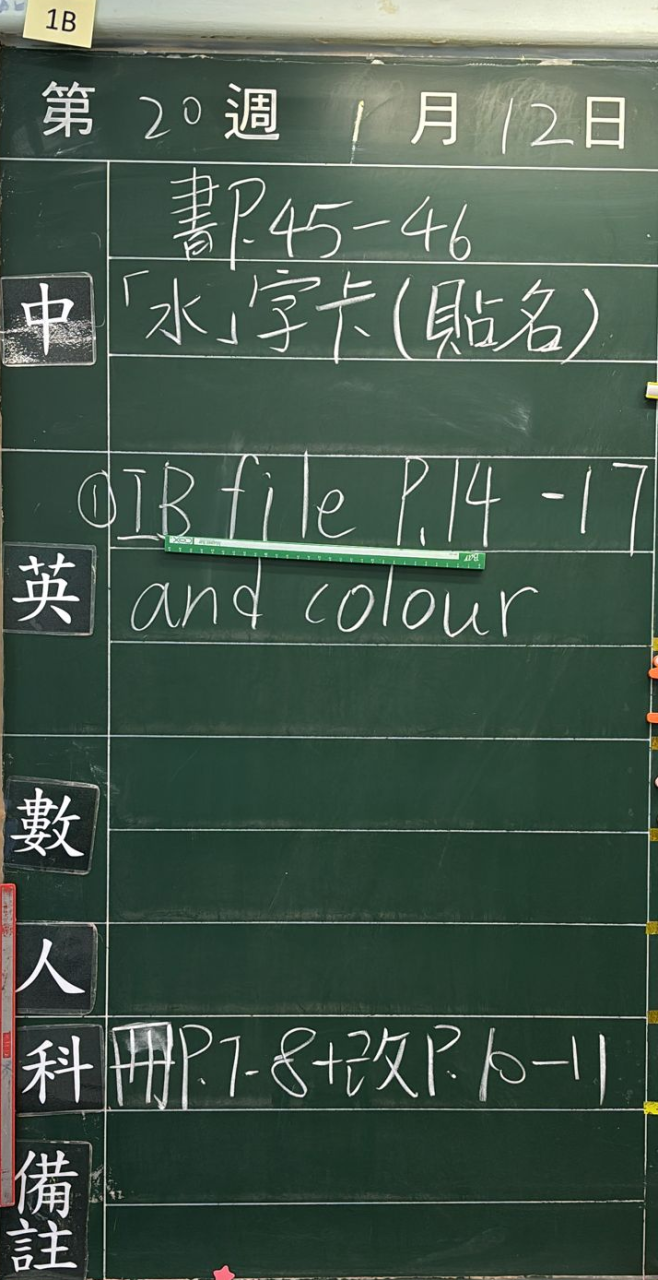 1B
第 20 週 1 月 12 日
書P.45-46
中
「水」字卡(貼名)
①IB file P.14 -17
英
and colour
數
人
科
冊P.7-8+改P.10-11
備
註